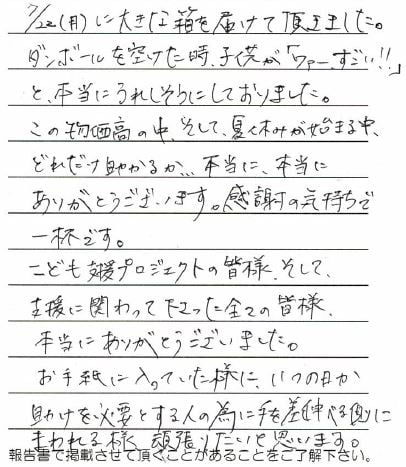 7/22(月)に大きな箱を届けて頂きました。
ダンボールを空けた時、子供が「ワァー、すごい!!」
と、本当にうれしそうにしておりました。
この物価高の中、そして、夏休みが始まる中、
どれだけ助かるか、本当に、本当に
ありがとうございます。感謝の気持ちで
一杯です。
こども支援プロジェクトの皆様、そして、
支援に関わって下さった全ての皆様、
本当にありがとうございました。
お手紙に入っていた様に、いつの日か
助けを必要とする人の為に手を差伸べる側に
まわれる様、頑張りたいと思います。
報告書で掲載させて頂くことがあることをご了解下さい。